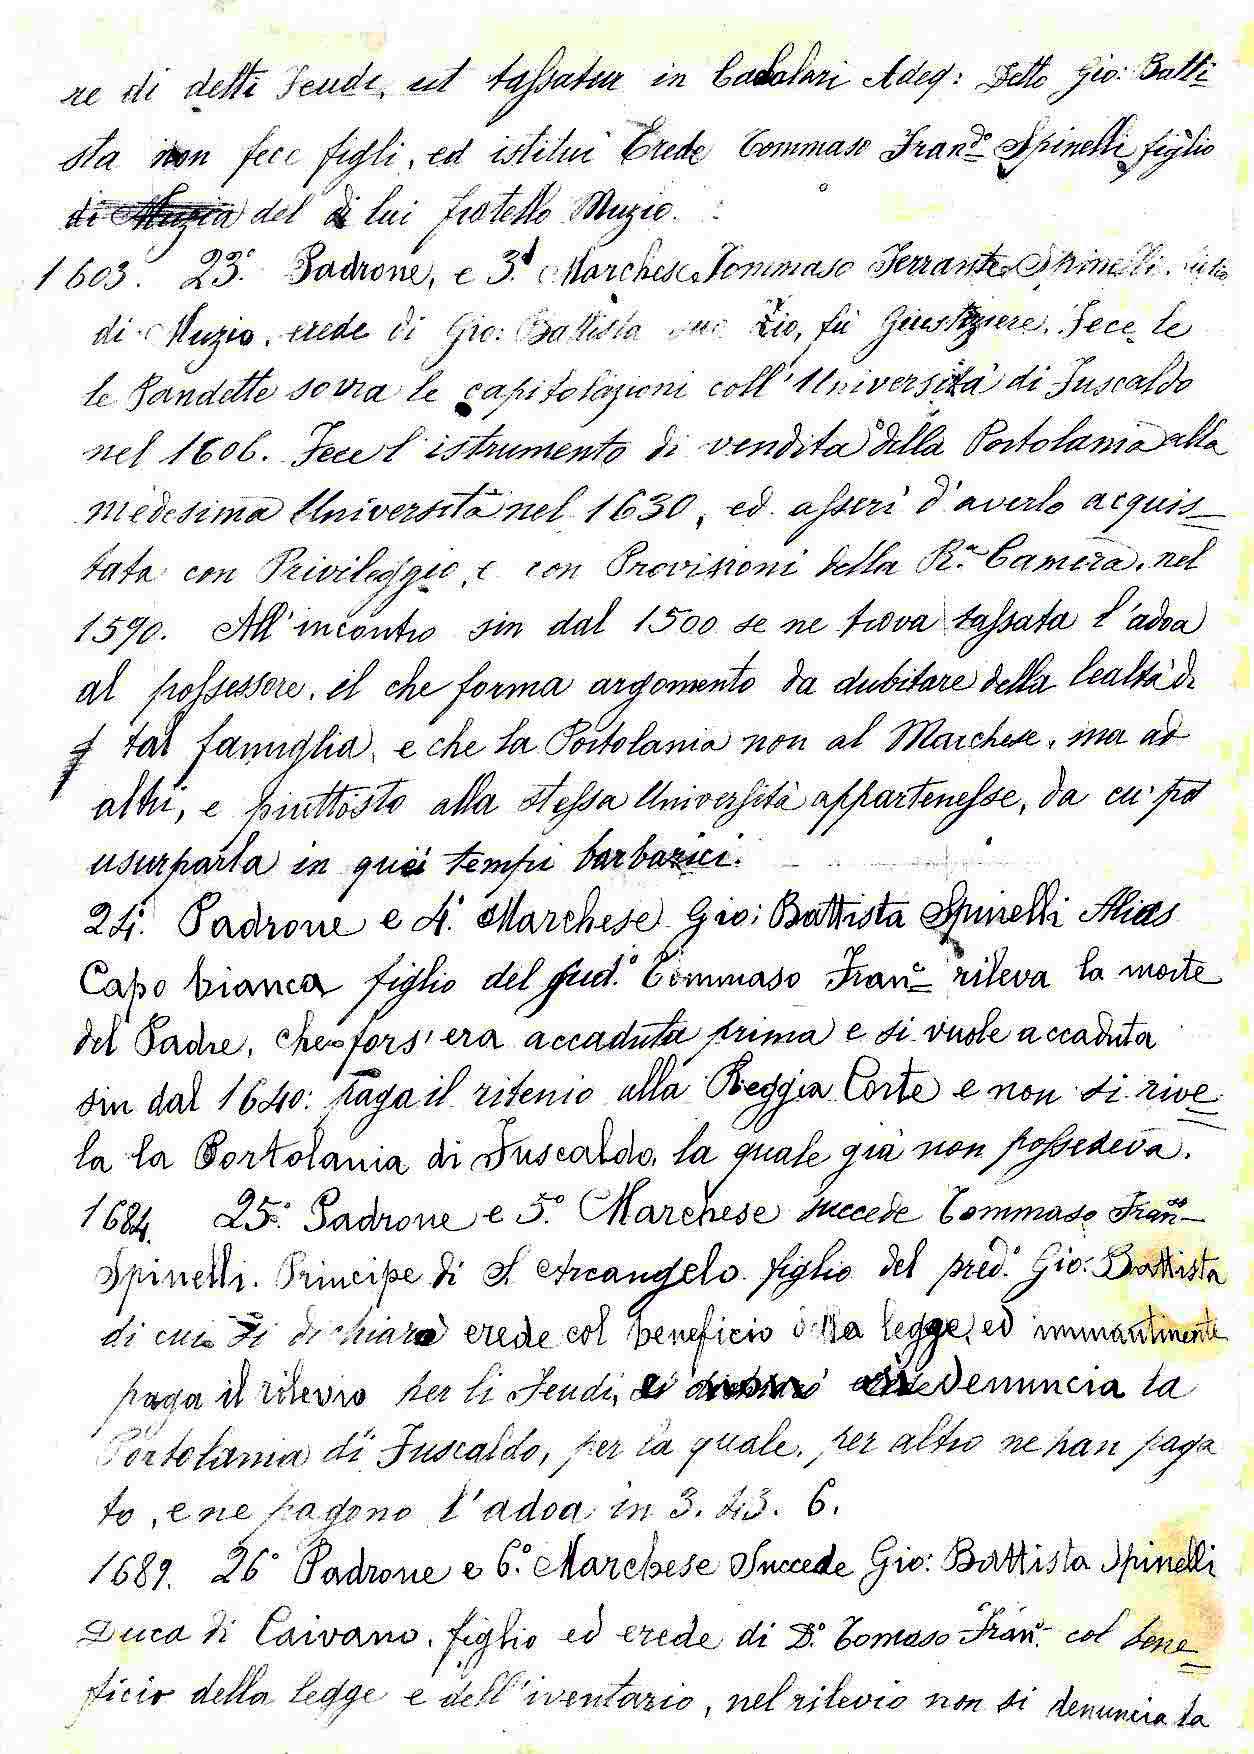 re di detti Feudi, ut tassatur in Cedolari Adeg: Detto Gio: Batti=
sta non fece figli, ed istituì Erede Tommaso Fran.do Spinelli figlio
di Muzio del di lui fratello Muzio.
1603. 23.° Padrone, e 3.° Marchese Tommaso Ferrante Spinelli figlio
di Muzio, erede di Gio: Battista suo Zio, fù Giustiziere. Fece le
le Pandette sovra le capitolazioni coll' Università di Fuscaldo
nel 1606. Fece l' istrumento di vendita della Portolania alla
medesima Università nel 1630, ed asserì d'averlo acquis=
tata con Privileggio, e con Provisioni della R.a Camera, nel
1590. All' incontro sin dal 1500 se ne trova tassata l'adoa
al possessore, il che forma argomento da dubitare della lealtà di
tal famiglia, e che la Portolania non al Marchese, ma ad
altri, e piuttosto alla stessa Università appartenesse, da cu' potè
usurparla in quei tempi barbarici.
24.° Padrone e 4.° Marchese Gio: Battista Spinelli Alias
Capo bianca figlio del sud.° Tommaso Fran.o rileva la morte
del Padre, che fors' era accaduta prima e si vuole accaduta
sin dal 1640: paga il rilevio alla Reggia Corte e non si rive=
la la Portolania di Fuscaldo, la quale già non possedeva.
1684. 25.° Padrone e 5.° Marchese succede Tommaso Fran.co
Spinelli. Principe di S. Arcangelo figlio del pred.° Gio: Battista
di cui si dichiarò erede col beneficio della legge, ed immantinente
paga il rilevio per li Feudi, e non si denuncia la
Portolania di Fuscaldo, per la quale, per altro ne han paga
to, e ne pagono l'adoa in 3. 43. 6.
1689. 26° Padrone e 6.° Marchese Succede Gio: Battista Spinelli
Duca di Caivano, figlio ed erede di D.° Tomaso Fran.o col bene=
ficio della legge e dell'iventario, nel rilevio non si denuncia la